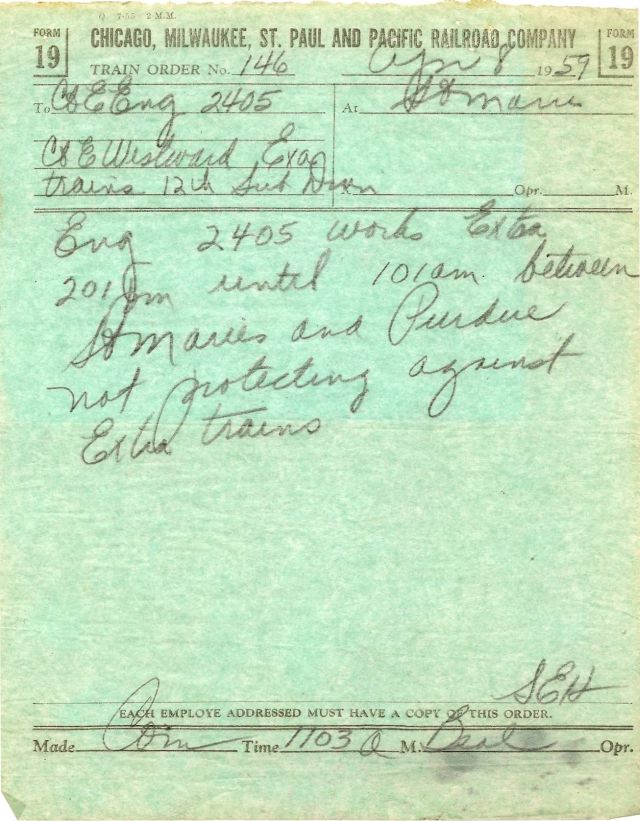 Q 7-55 2 M.M.
FORM 19 CHICAGO, MILWAUKEE, ST. PAUL AND PACIFIC RAILROAD COMPANY FORM 19
TRAIN ORDER No. 146 Apr 8 1959
To C&E Eng 2405 At St Maries
C&E Westward Extra
trains 12th Sub Divn
X Opr. M.
Eng 2405 works Extra
201pm until 101am between
St Maries and Purdue
not protecting against
Extra trains
SEH
EACH EMPLOYE ADDRESSED MUST HAVE A COPY OF THIS ORDER.
Made Com Time 1103 A M. Beal Opr.